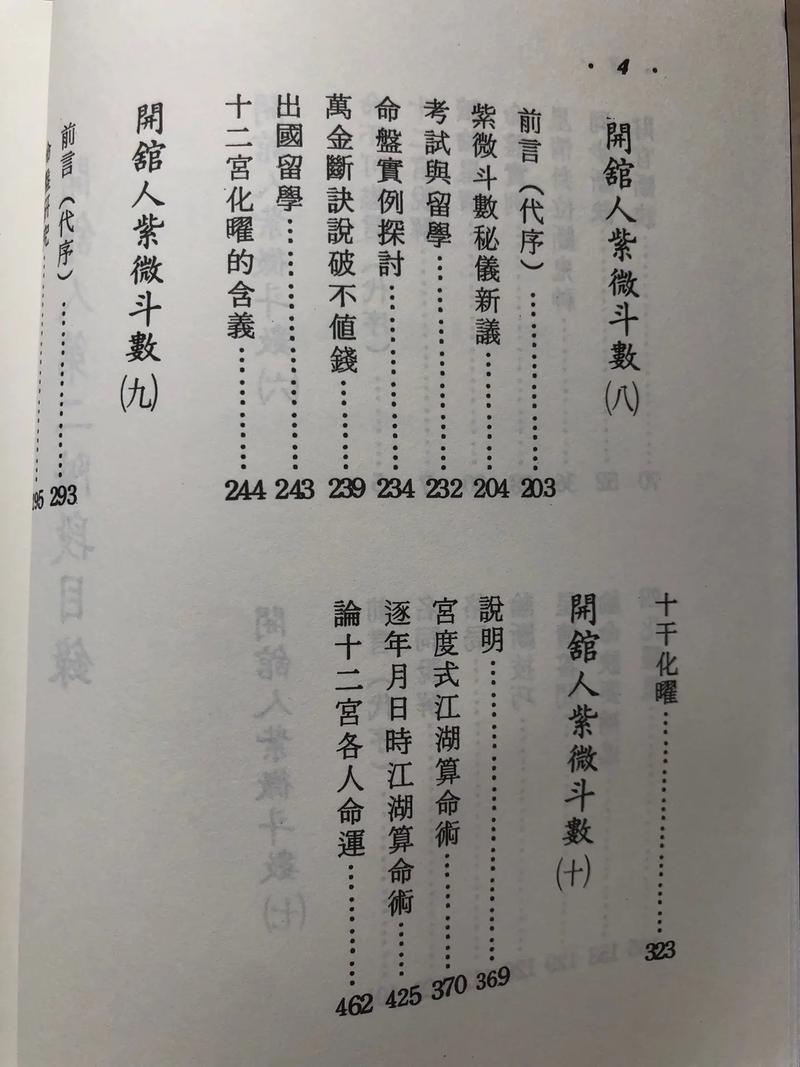 · 4 ·
開舘人紫微斗數(八)
前言(代序)……………203
紫微斗數秘儀新議……………204
考試與留學……………232
命盤實例探討……………234
萬金斷訣說破不值錢……………239
出國留學……………243
十二宮化曜的含義……………244
開舘人紫微斗數(九)
前言(代序)……………293
十干化曜……………323
開舘人紫微斗數(十)
說明……………369
宮度式江湖算命術……………370
逐年月日時江湖算命術……………425
論十二宮各人命運……………462